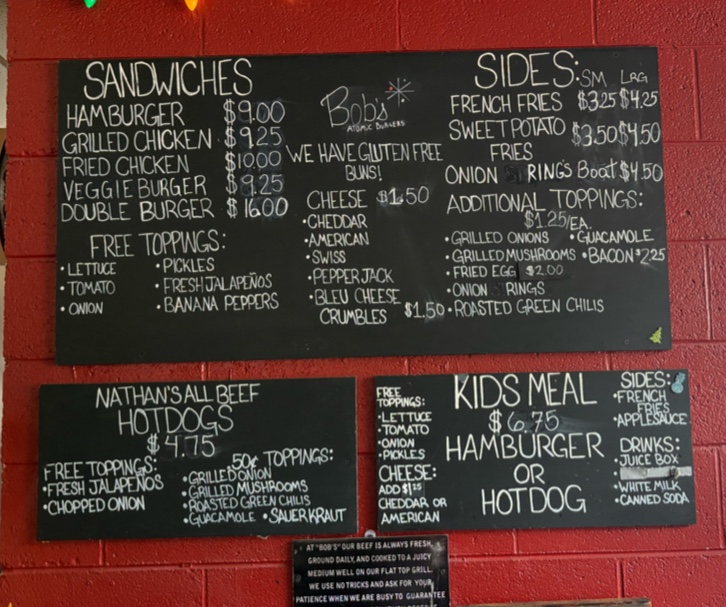 SANDWICHES
HAMBURGER $9.00
GRILLED CHICKEN $9.25
FRIED CHICKEN $10.00
VEGGIE BURGER $9.25
DOUBLE BURGER $16.00
FREE TOPPINGS:
• LETTUCE • PICKLES
• TOMATO • FRESH JALAPEÑOS
• ONION • BANANA PEPPERS
Bob's
ATOMIC BURGERS
WE HAVE GLUTEN FREE
BUNS!
CHEESE $1.50
• CHEDDAR
• AMERICAN
• SWISS
• PEPPER JACK
• BLEU CHEESE
CRUMBLES $1.50
SIDES: SM LRG
FRENCH FRIES $3.25 $4.25
SWEET POTATO $3.50 $4.50
FRIES
ONION RINGS Boat $4.50
ADDITIONAL TOPPINGS:
$1.25/EA.
• GRILLED ONIONS • GUACAMOLE
• GRILLED MUSHROOMS • BACON $2.25
• FRIED EGG $2.00
• ONION RINGS
• ROASTED GREEN CHILIS
NATHAN'S ALL BEEF
HOTDOGS
$4.75
FREE TOPPINGS:
• FRESH JALAPEÑOS
• CHOPPED ONION
50¢ TOPPINGS:
• GRILLED ONION
• GRILLED MUSHROOMS
• ROASTED GREEN CHILIS
• GUACAMOLE • SAUERKRAUT
FREE
TOPPINGS:
• LETTUCE
• TOMATO
• ONION
• PICKLES
CHEESE:
ADD $1.25
CHEDDAR OR
AMERICAN
KIDS MEAL
$6.75
HAMBURGER
OR
HOTDOG
SIDES:
• FRENCH
FRIES
• APPLESAUCE
DRINKS:
• JUICE BOX
• WHITE MILK
• CANNED SODA
AT "BOB'S" OUR BEEF IS ALWAYS FRESH,
GROUND DAILY, AND COOKED TO A JUICY
MEDIUM WELL ON OUR FLAT TOP GRILL.
WE USE NO TRICKS AND ASK FOR YOUR
PATIENCE WHEN WE ARE BUSY TO GUARANTEE